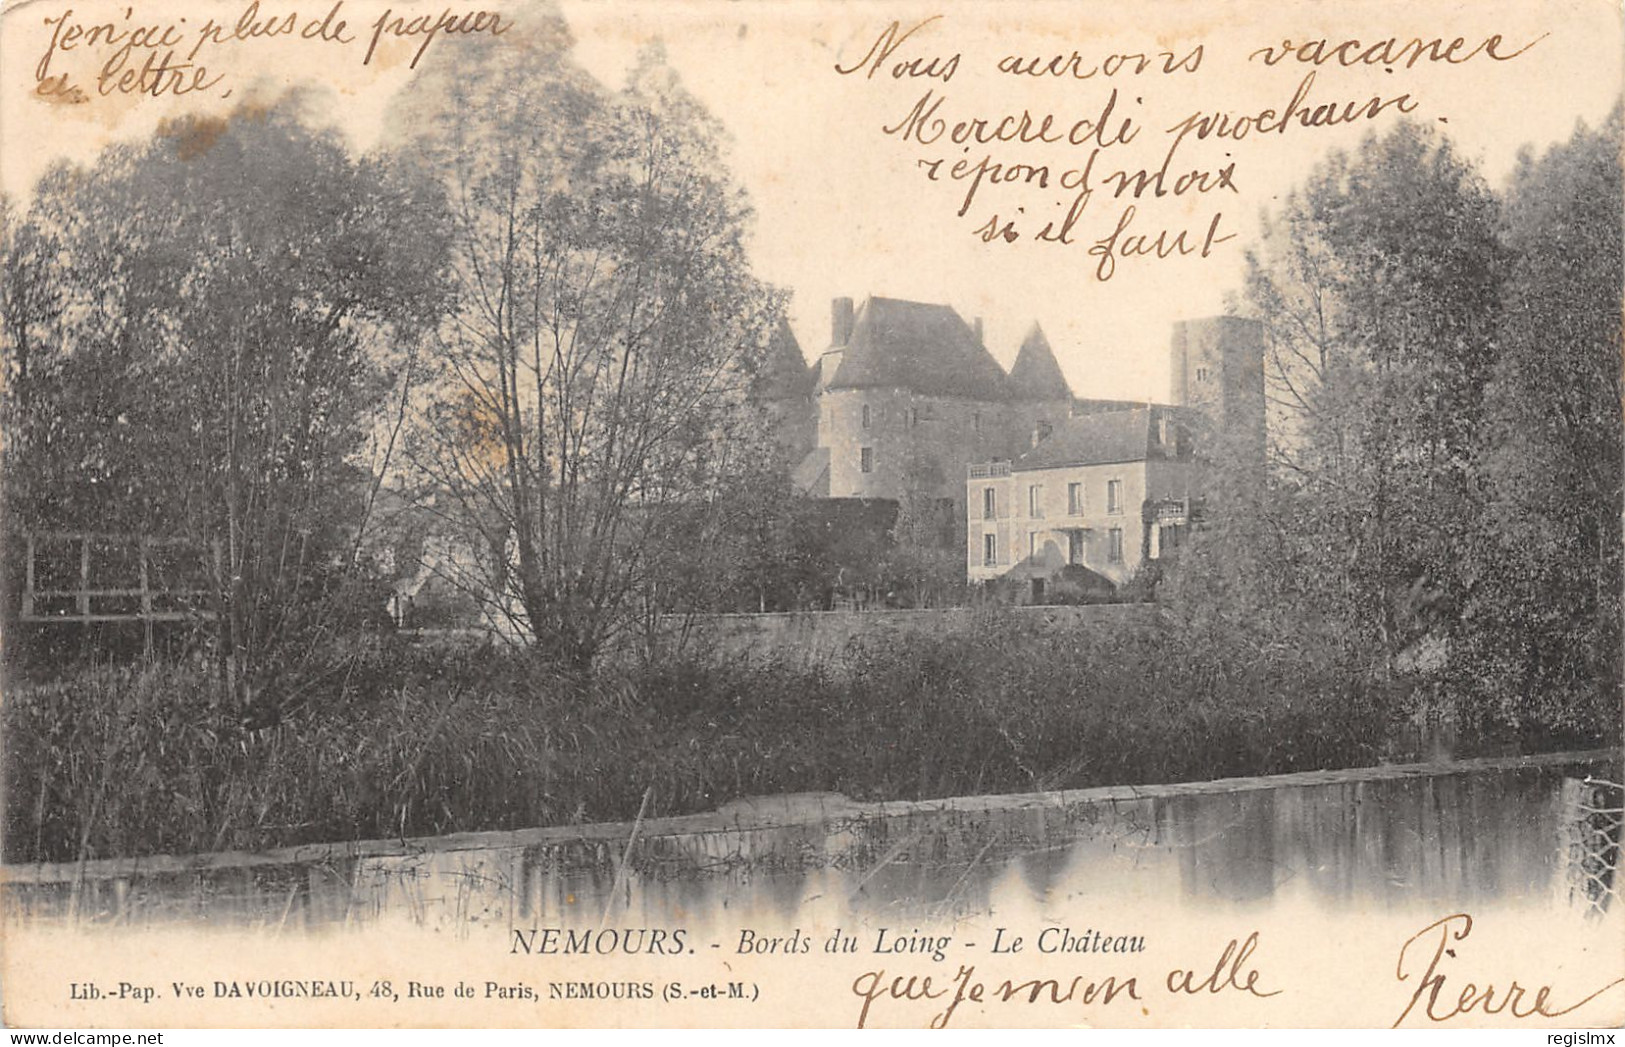 Jen'ai plus de papier
a lettre,
Nous aurons vacance
Mercredi prochain.
répond moix
si il faut
que Je men alle
Pierre
NEMOURS. - Bords du Loing - Le Château
Lib.-Pap. Vve DAVOIGNEAU, 48, Rue de Paris, NEMOURS (S.-et-M.)
delcampe.net
regislmx